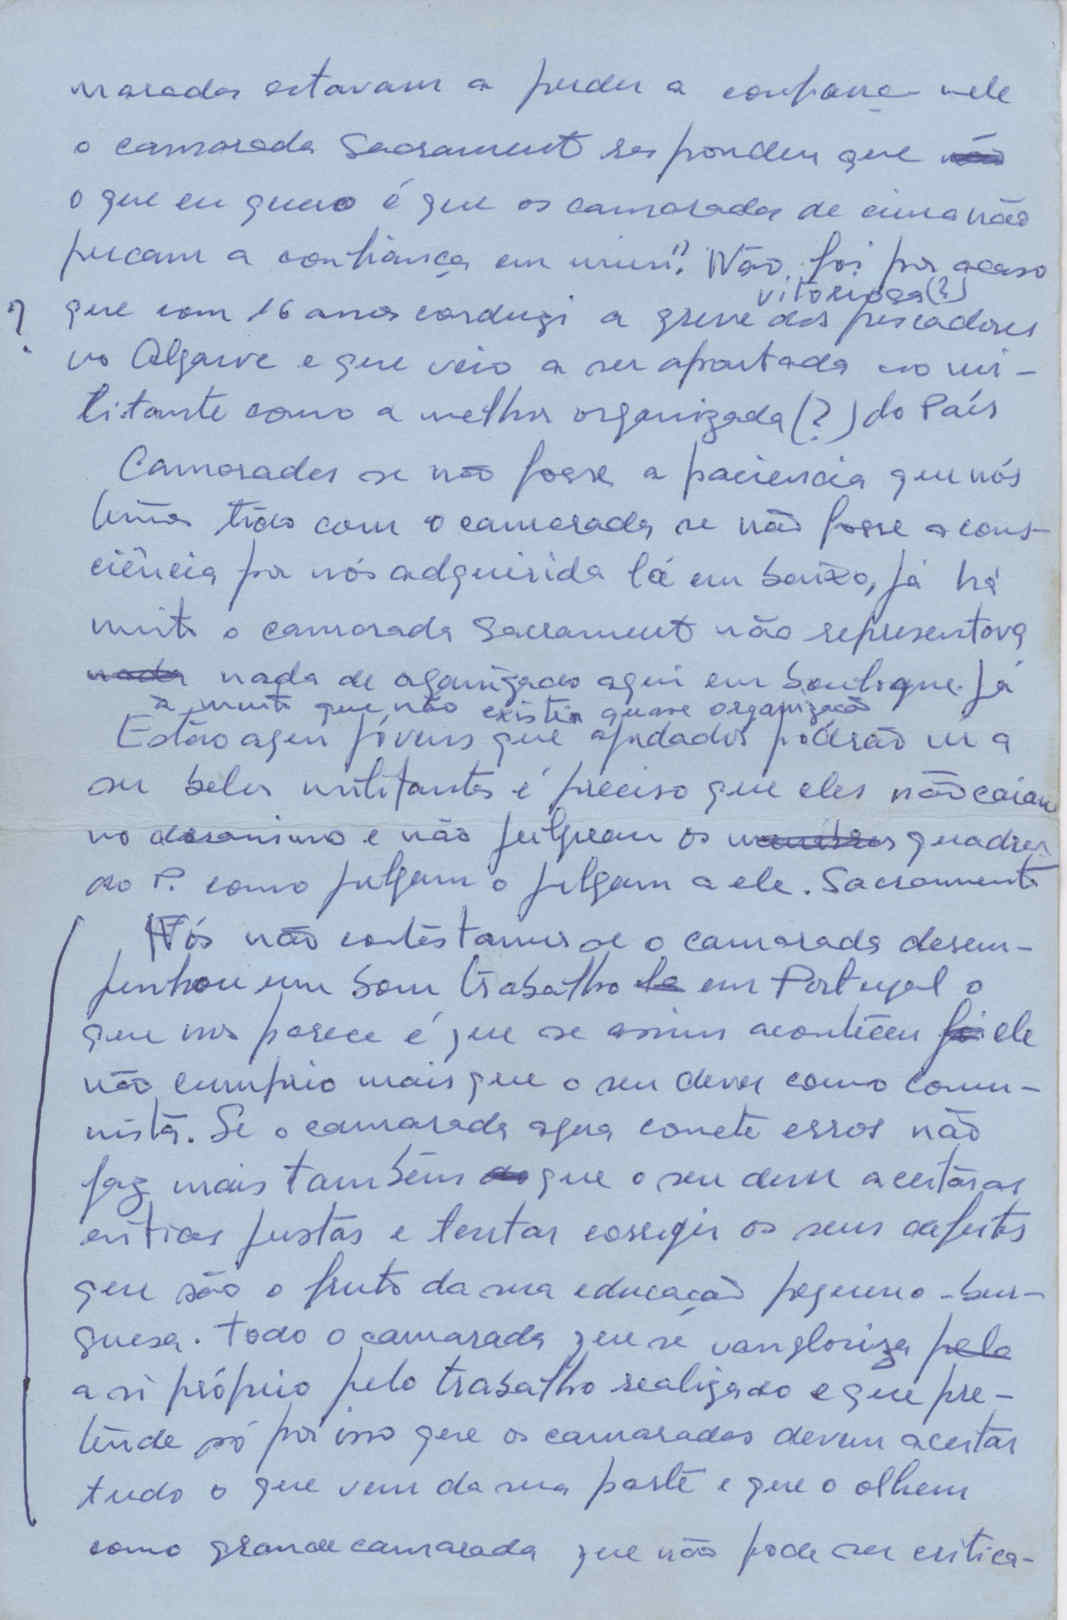 maradas estavam a perder a confiança nele
o camarada Sacrament respondeu que não
o que eu quero é que os camaradas de cima não
percam a confiança em mim". Não foi por acaso
vitoriosa(?)
? que com 16 anos conduzi a greve dos pescadores
no Algarve e que veio a ser apontada no mi-
litante como a melhor organizada (?) do País
Camaradas se não fosse a paciencia que nós
temos tido com o camarada se não fosse a cons-
ciência por nós adquirida lá em baixo, já há
muito o camarada Sacrament não representava
nada nada de aganizado aqui em boulogne. Já
à muito que não existia quase organização
Estão aqui jóvens que ajudados poderão vir a
ser belos militantes é preciso que eles não caiam
no desanimo e não julguem os membros quadros
do P. como julgam o julgam a ele. Sacramento
Nós não contestamos se o camarada desem-
penhou um bom trabalho la em Portugal o
que nos parece é que se assim aconteceu foi ele
não cumprio mais que o seu dever como comu-
nista. Se o camarada agora comete erros não
faz mais também do que o seu dever aceitar as
criticas justas e tentar corregir os seus defeitos
que são o fruto da sua educação pequeno-bur-
guesa. Todo o camarada que se vangloriza pelo
a si próprio pelo trabalho realizado e que pre-
tende só por isso que os camaradas devem aceitar
tudo o que vem da sua parte e que o olhem
como grande camarada que não pode ser critica-